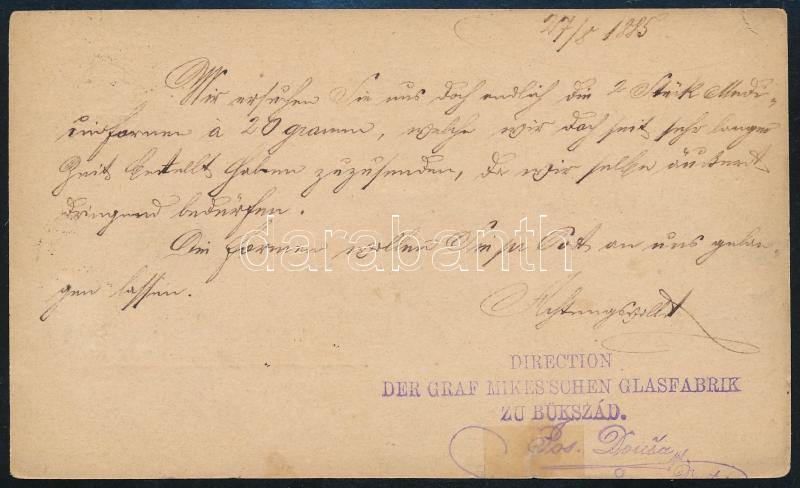 27/8 1885
Wir ersuchen Sie uns doch endlich die 2 Stück Medi-
cinformen à 20 gramm, welche wir doch seit sehr langer
Zeit bestellt haben zuzusenden, da wir selbe äußerst
dringend bedürfen.
Die Formen wollen Sie pr Post an uns gelan-
gen lassen.
darabanth
Achtungsvollst
DIRECTION
DER GRAF MIKES'SCHEN GLASFABRIK
ZU BÜKSZÁD.
Jos. Douša